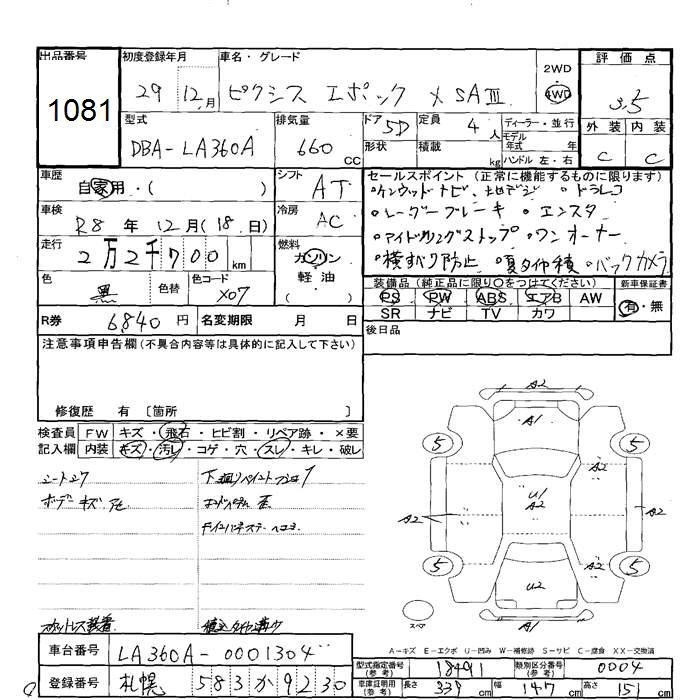 出品番号 初度登録年月 車名・グレード 2WD 評価点
1081 29年12月 ピクシス エポック X SAⅢ 4WD 3.5
型式 排気量 ドア 5D 定員 4人 ディーラー・並行 外装 内装
DBA-LA360A 660 CC 形状 積載 kg モデル年式 年式 ハンドル 左・右 C C
車歴 自家用・( ) シフト AT セールスポイント(正常に機能するものに限ります)
・ケンウッドナビ、地デジ ・ドラレコ
車検 R8年12月(18日) 冷房 AC ・レーダーブレーキ ・エンスタ
走行 2万2千700km 燃料 ガソリン 軽油 ( ) ・アイドリングストップ ・ワンオーナー
色 黒 色替 色コード X07 ・横すべり防止 ・夏タイヤ積 ・バックカメラ
装備品(純正品に限り○をつけてください) 新車保証書
PS PW ABS エアB AW 有・無
SR ナビ TV カワ
R券 6840円 名変期限 月 日 後日品
注意事項申告欄(不具合内容等は具体的に記入して下さい)
修復歴 有〔箇所
検査員 FW キズ・飛石・ヒビ割・リペア跡・×要
記入欄 内装 キズ・汚レ・コゲ・穴・スレ・キレ・破レ
下廻り
A2
A1
5 5
A2 U/A2 A2 A2
5 5
U2
A1
スペア
A-キズ E-エクボ U-凹み W-補修跡 S-サビ C-腐食 XX-交換済
車台番号 LA360A-0001304
型式指定番号(参考) 18491 類別区分番号(参考) 0004
登録番号 札幌 583か9230
車庫証明用(参考) 長さ 339cm 幅 147cm 高さ 151cm